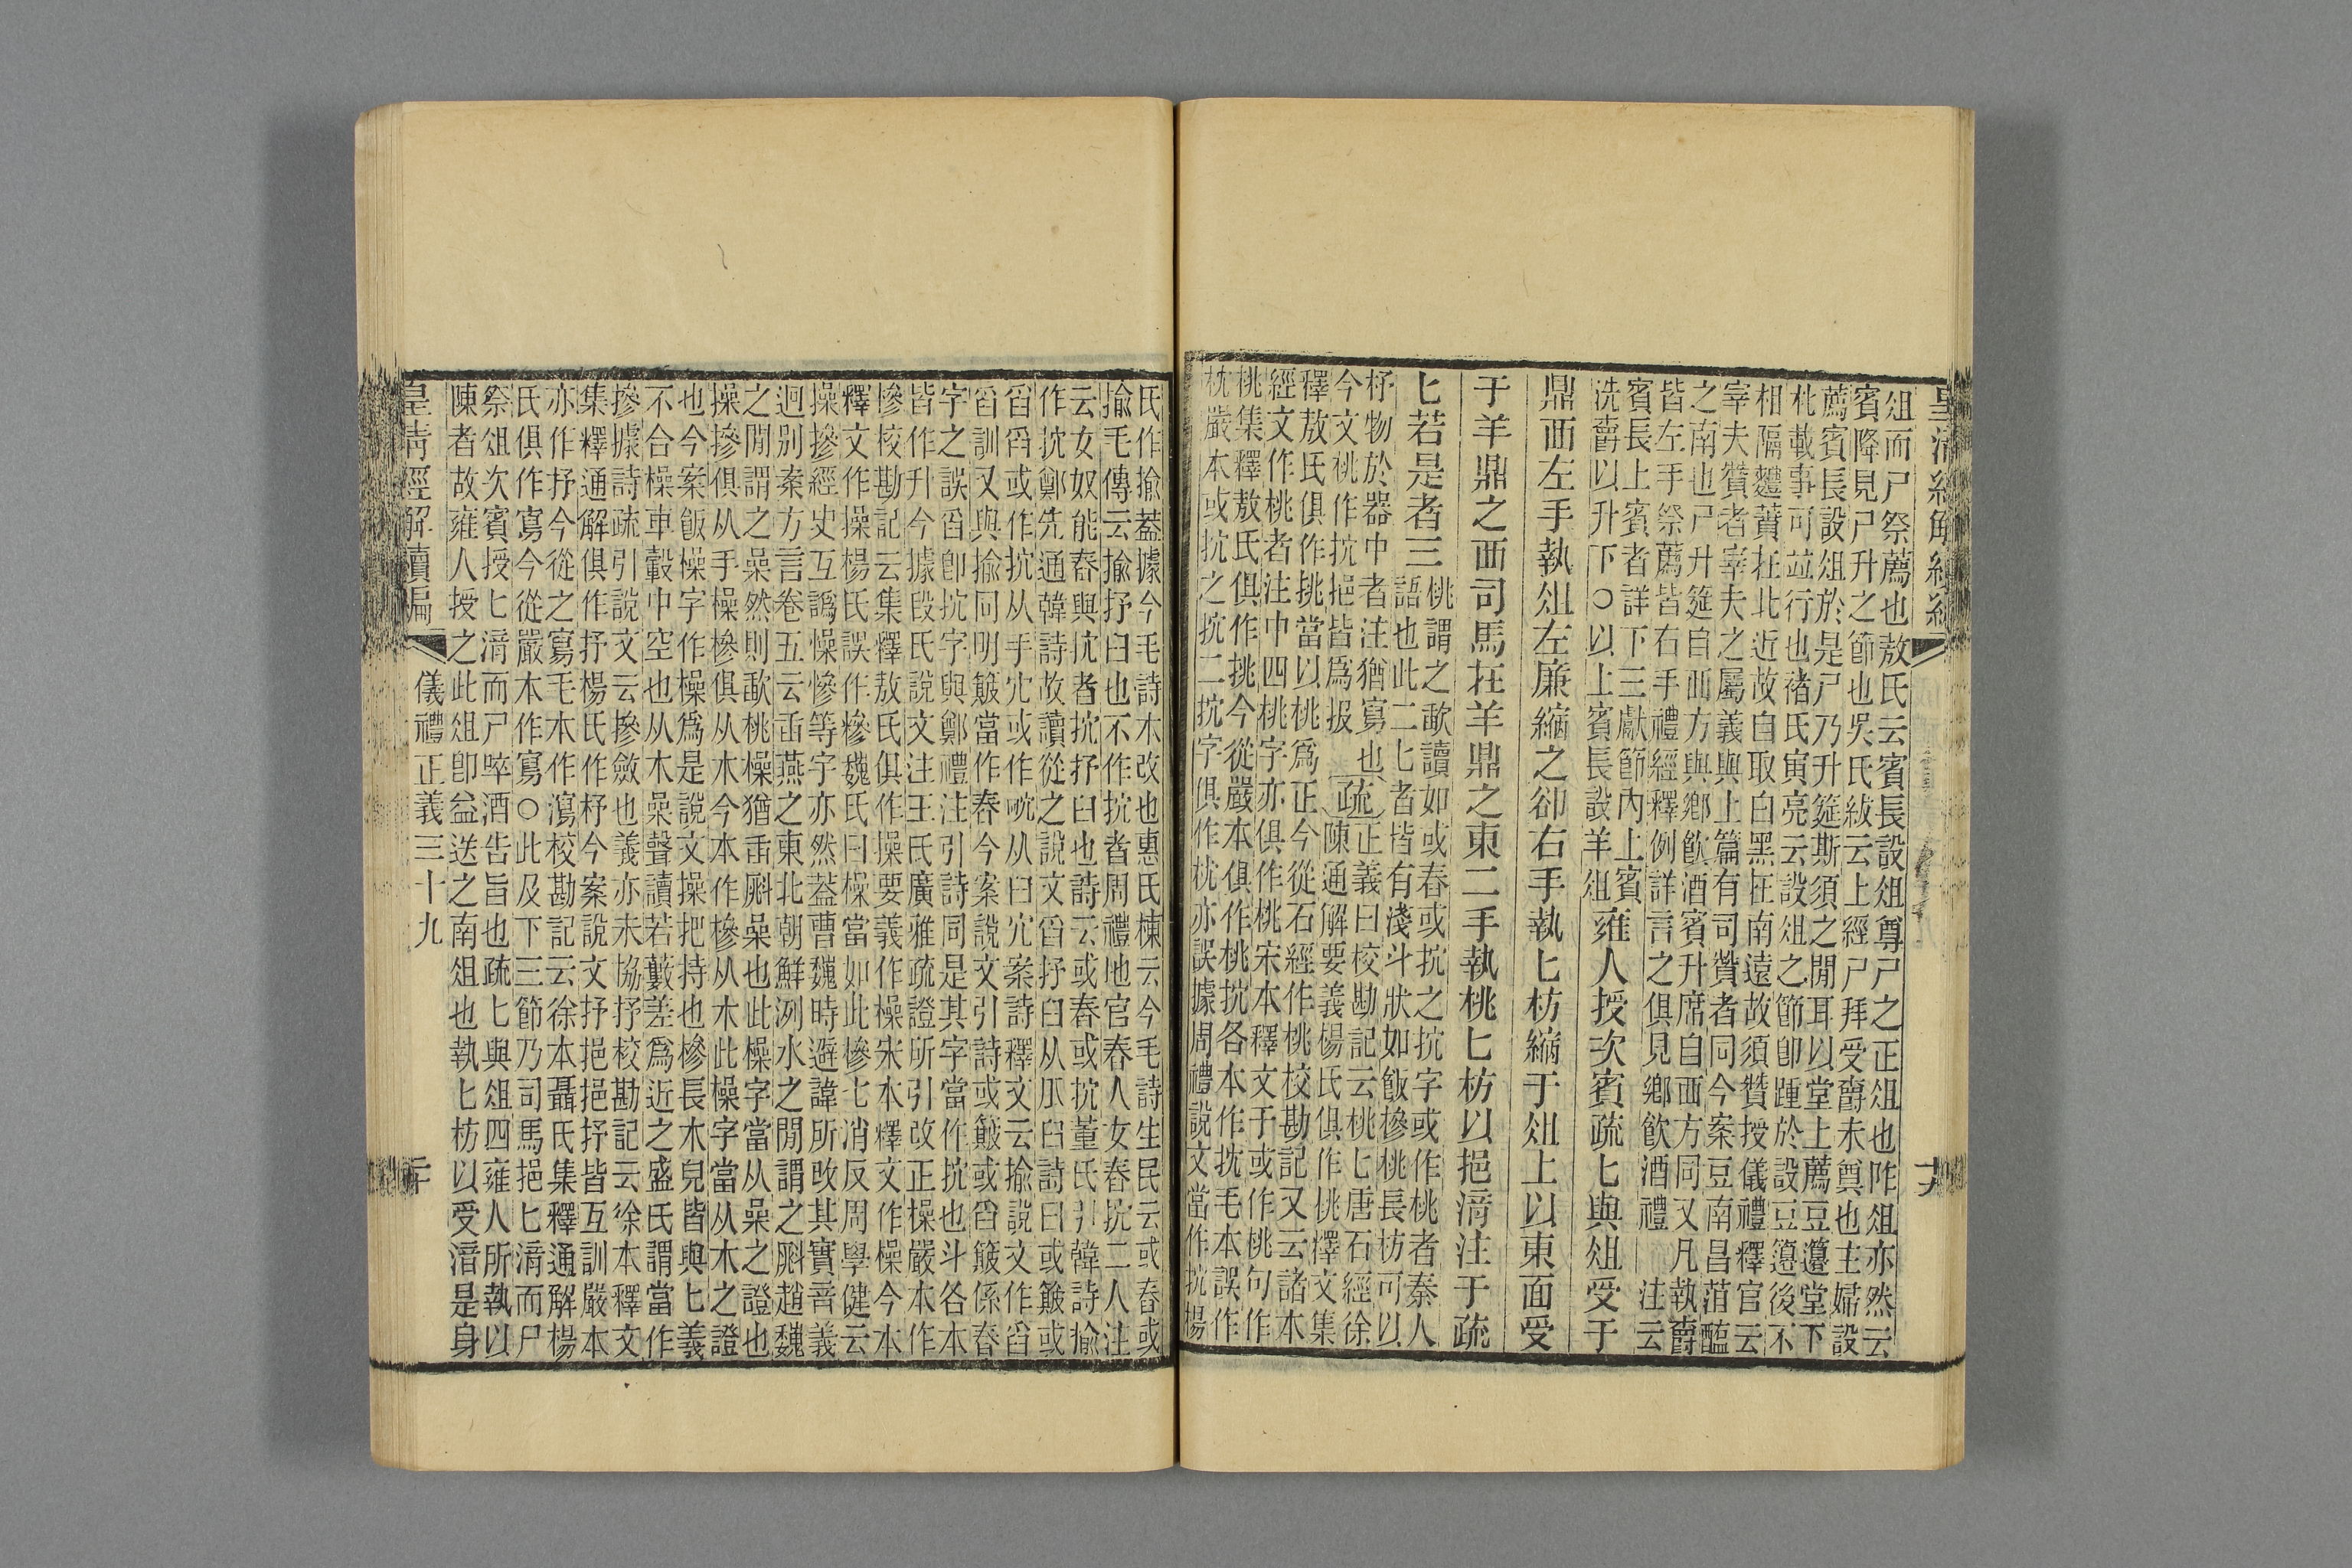 俎而尸祭薦也敖氏云賓長設俎尊尸之正俎也阼俎亦然云
賓降見尸升之節也吳氏紱云上經尸拜受爵未奠也主婦設
薦賓長設俎於是尸乃升筵斯須之閒耳以堂上薦豆籩堂下
朼載事可竝行也褚氏寅亮云設俎之節卽踵於設豆籩後不
相隔豑蕡在北近故自取白黑在南遠故須贊授儀禮釋官云
宰夫贊者宰夫之屬義與上篇有司贊者同今案豆南昌菹醢
之南也尸升筵自西方與鄉飲酒賓升席自西方同又凡執爵
皆左手祭薦皆右手禮經釋例詳言之俱見鄉飲酒禮 注云
賓長上賓者詳下三獻節內上賓
洗爵以升下○以上賓長設羊俎
雍人授次賓疏匕與俎受于
鼎西左手執俎左廉縮之卻右手執匕枋縮于俎上以東面受
于羊鼎之西司馬在羊鼎之東二手執桃匕枋以挹湇注于疏
匕若是者三
桃謂之歃讀如或舂或抗之抗字或作桃者秦人
語也此二匕者皆有淺斗狀如飯橾桃長枋可以
抒物於器中者注猶寫也
今文桃作抗挹皆爲扱
疏
正義曰校勘記云桃匕唐石經徐
陳通解要義楊氏俱作挑釋文集
釋敖氏俱作挑當以桃爲正今從石經作桃校勘記又云諸本
經文作桃者注中四桃字亦俱作桃宋本釋文于或作桃句作
桃集釋敖氏俱作挑今從嚴本俱作桃抗各本作抌毛本誤作
枕嚴本或抗之抗二抗字俱作枕亦誤據周禮說文當作抭楊
氏作揄葢據今毛詩本改也惠氏棟云今毛詩生民云或舂或
揄毛傳云揄抒臼也不作抗者周禮地官舂人女舂抗二人注
云女奴能舂與抗者抗抒臼也詩云或舂或抗董氏引韓詩揄
作抌鄭先通韓詩故讀從之說文舀抒臼从爪臼詩曰或簸或
舀舀或作抭从手宂或作㕴从臼宂案詩釋文云揄說文作舀
舀訓又與揄同明簸當作舂今案說文引詩或簸或舀簸係舂
字之誤舀卽抗字與鄭禮注引詩同是其字當作抗也斗各本
皆作升今據段氏說文注王氏廣雅疏證所引改正橾嚴本作
㯕校勘記云集釋敖氏俱作操要義作橾宋本釋文作橾今本
釋文作操楊氏誤作㯕魏氏曰橾當如此㯕七消反周學健云
操摻經史互譌懆慘等字亦然葢曹魏時避諱所改其實音義
迥別案方言卷五云臿燕之東北朝鮮洌水之閒謂之㪿趙魏
之閒謂之喿然則歃桃橾猶臿㪿喿也此橾字當从喿之證也
操摻俱从手橾㯕俱从木今本作㯕从木此橾字當从木之證
也今案飯橾字作橾爲是說文操把持也㯕長木皃皆與匕義
不合橾車轂中空也从木喿聲讀若藪差爲近之盛氏謂當作
摻據詩疏引說文云摻斂也義亦未協抒校勘記云徐本釋文
集釋通解俱作抒楊氏作杼今案說文抒挹挹抒皆互訓嚴本
亦作抒今從之寫毛本作瀉校勘記云徐本聶氏集釋通解楊
氏俱作寫今從嚴本作寫○此及下三節乃司馬挹匕湇而尸
祭俎次賓授匕湇而尸啐酒告旨也疏匕與俎四雍人所執以
陳者故雍人授之此俎卽益送之南俎也執匕枋以受湇是身
皇清經解續編
儀禮正義三十九